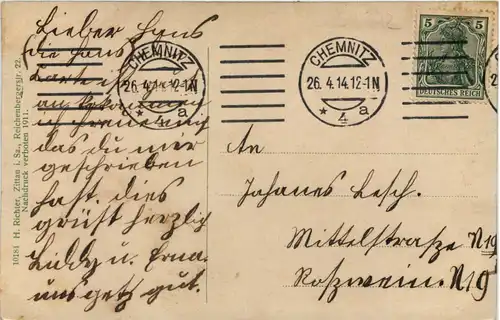 Lieber Hans
die
Karte
das du mir
geschrieben
hast. dies
grüst herzlich
Liddy u. Erna
uns getz gut.
10184 H. Richter, Zittau i. Sa., Reichenbergerstr. 22.
Nachdruck verboten 1911.
CHEMNITZ
26. 4. 12-1N
* 4 a
CHEMNITZ
26. 4. 14. 12-1N
* 4 a
5 5
DEUTSCHES REICH
An
Johanes Lesch.
Mittelstrasze N19
Roszwein. N19